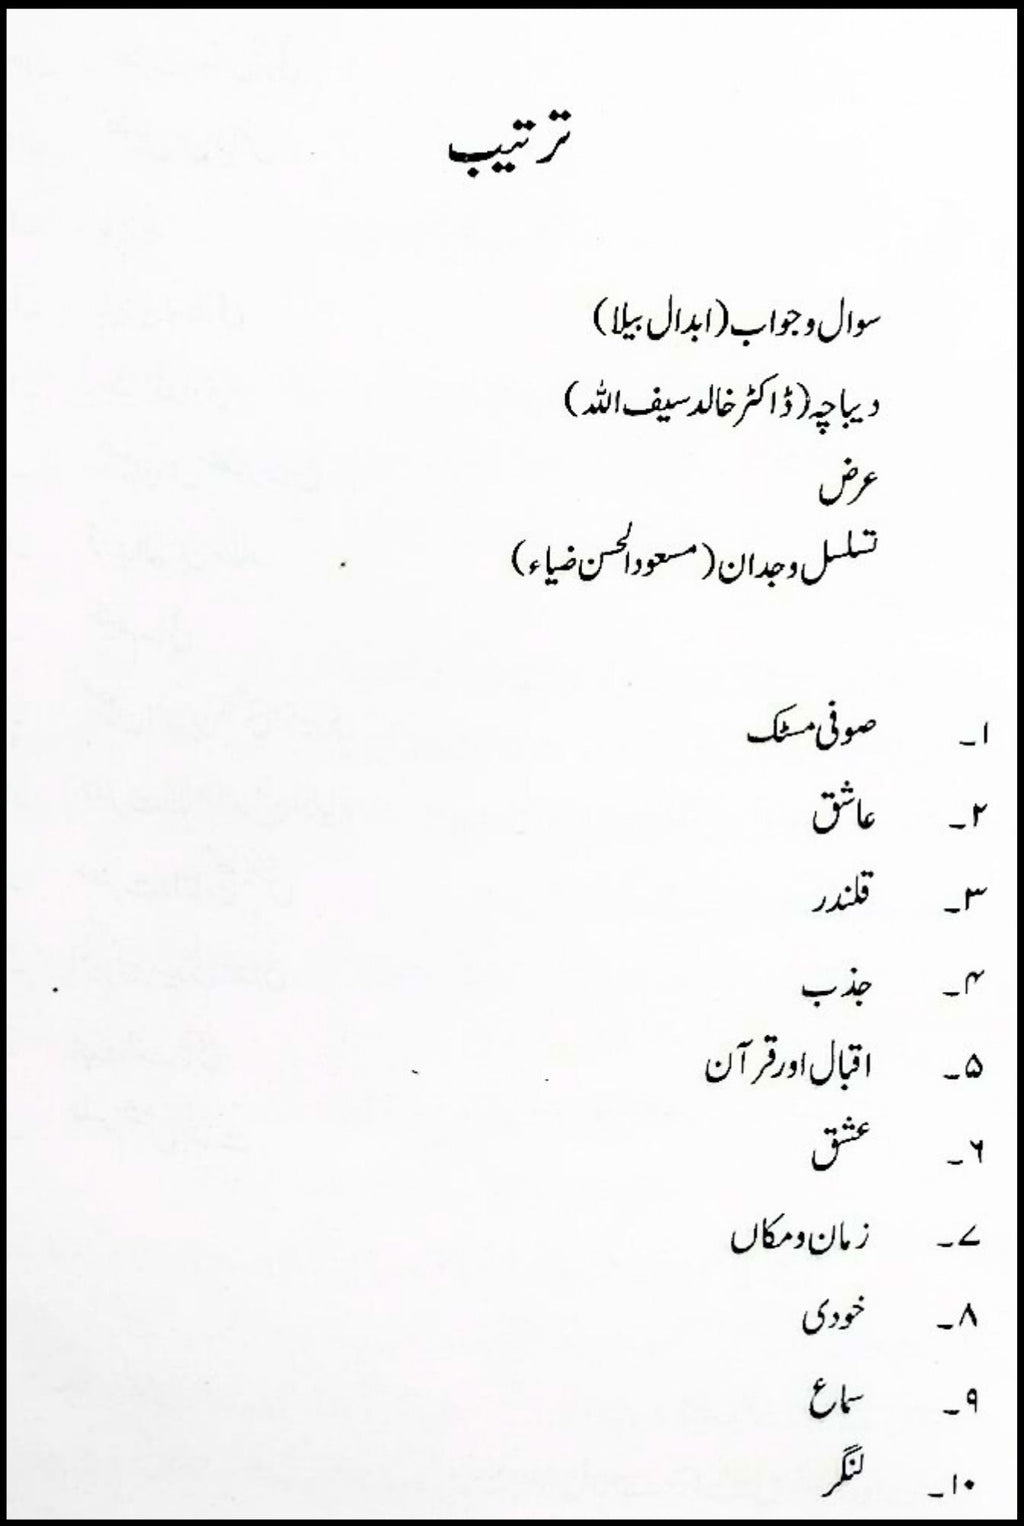 ترتیب
سوال و جواب (ابدال بیلا)
دیباچہ (ڈاکٹر خالد سیف اللہ)
عرض
تسلسل وجدان (مسعود الحسن ضیاء)
۱۔ صوفی مسٹک
۲۔ عاشق
۳۔ قلندر
۴۔ جذب
۵۔ اقبال اور قرآن
۶۔ عشق
۷۔ زمان و مکاں
۸۔ خودی
۹۔ سماع
۱۰۔ لنگر